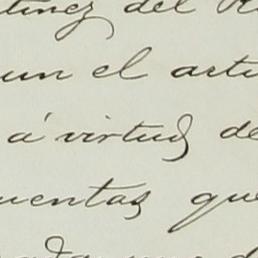 tinez del R
un el artí
á virtud de
uentas que